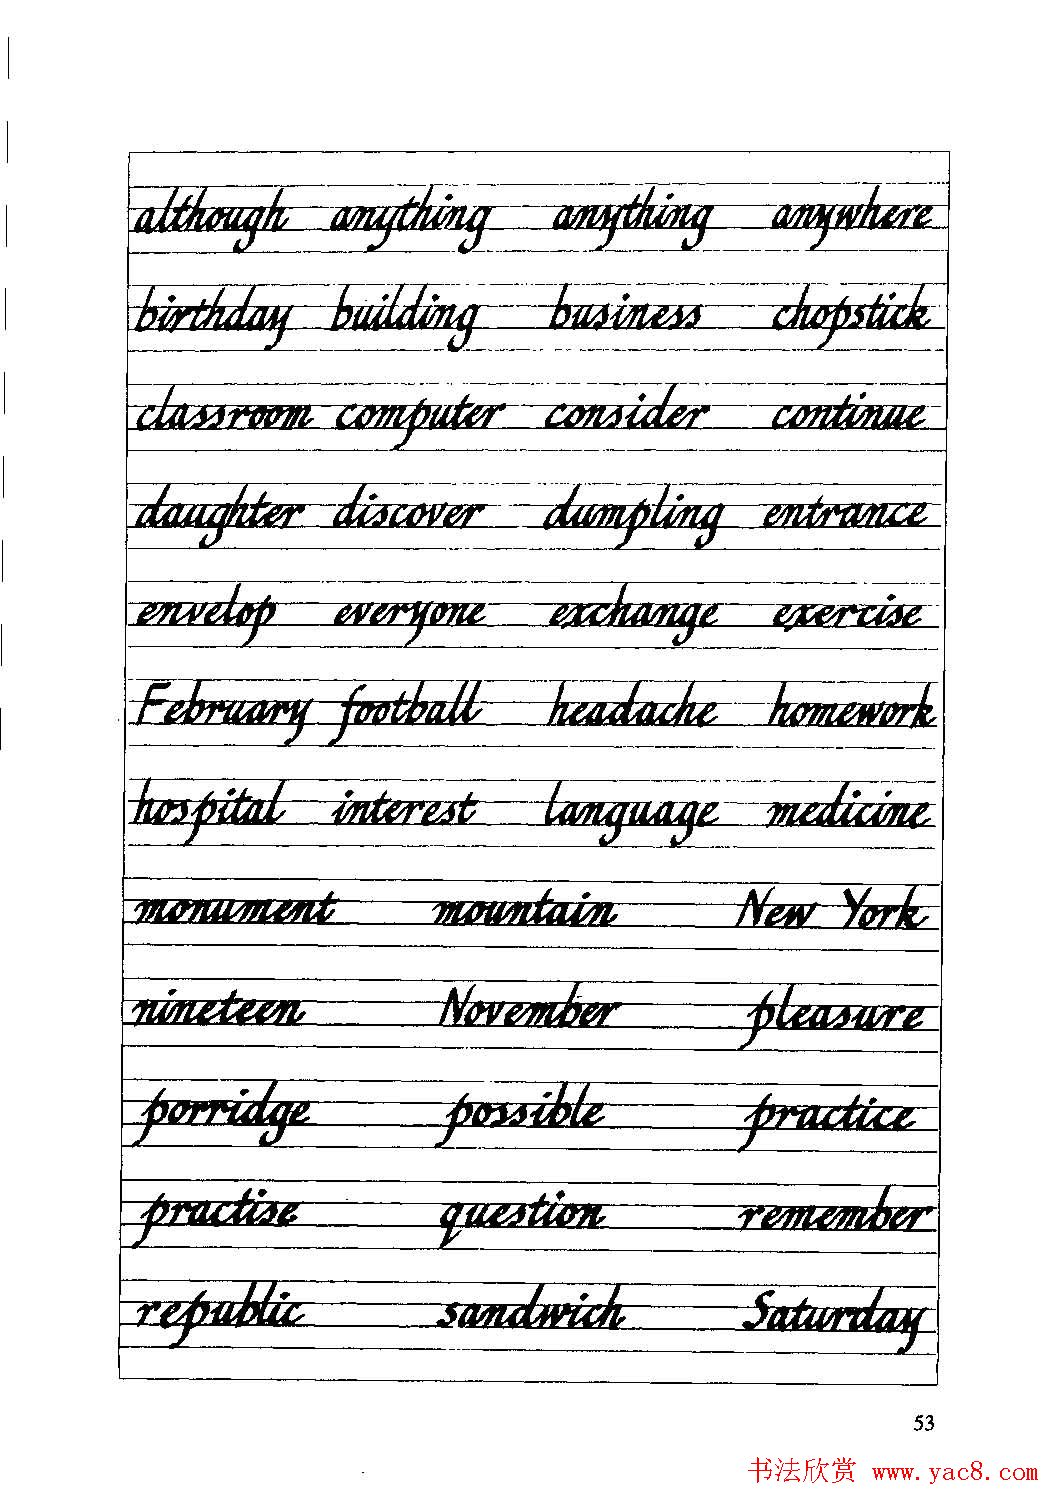 although anything anything anywhere
birthday building business chopstick
classroom computer consider continue
daughter discover dumpling entrance
envelop everyone exchange exercise
February football headache homework
hospital interest language medicine
monument mountain New York
nineteen November pleasure
porridge possible practice
practise question remember
republic sandwich Saturday
53
书法欣赏 www.yac8.com